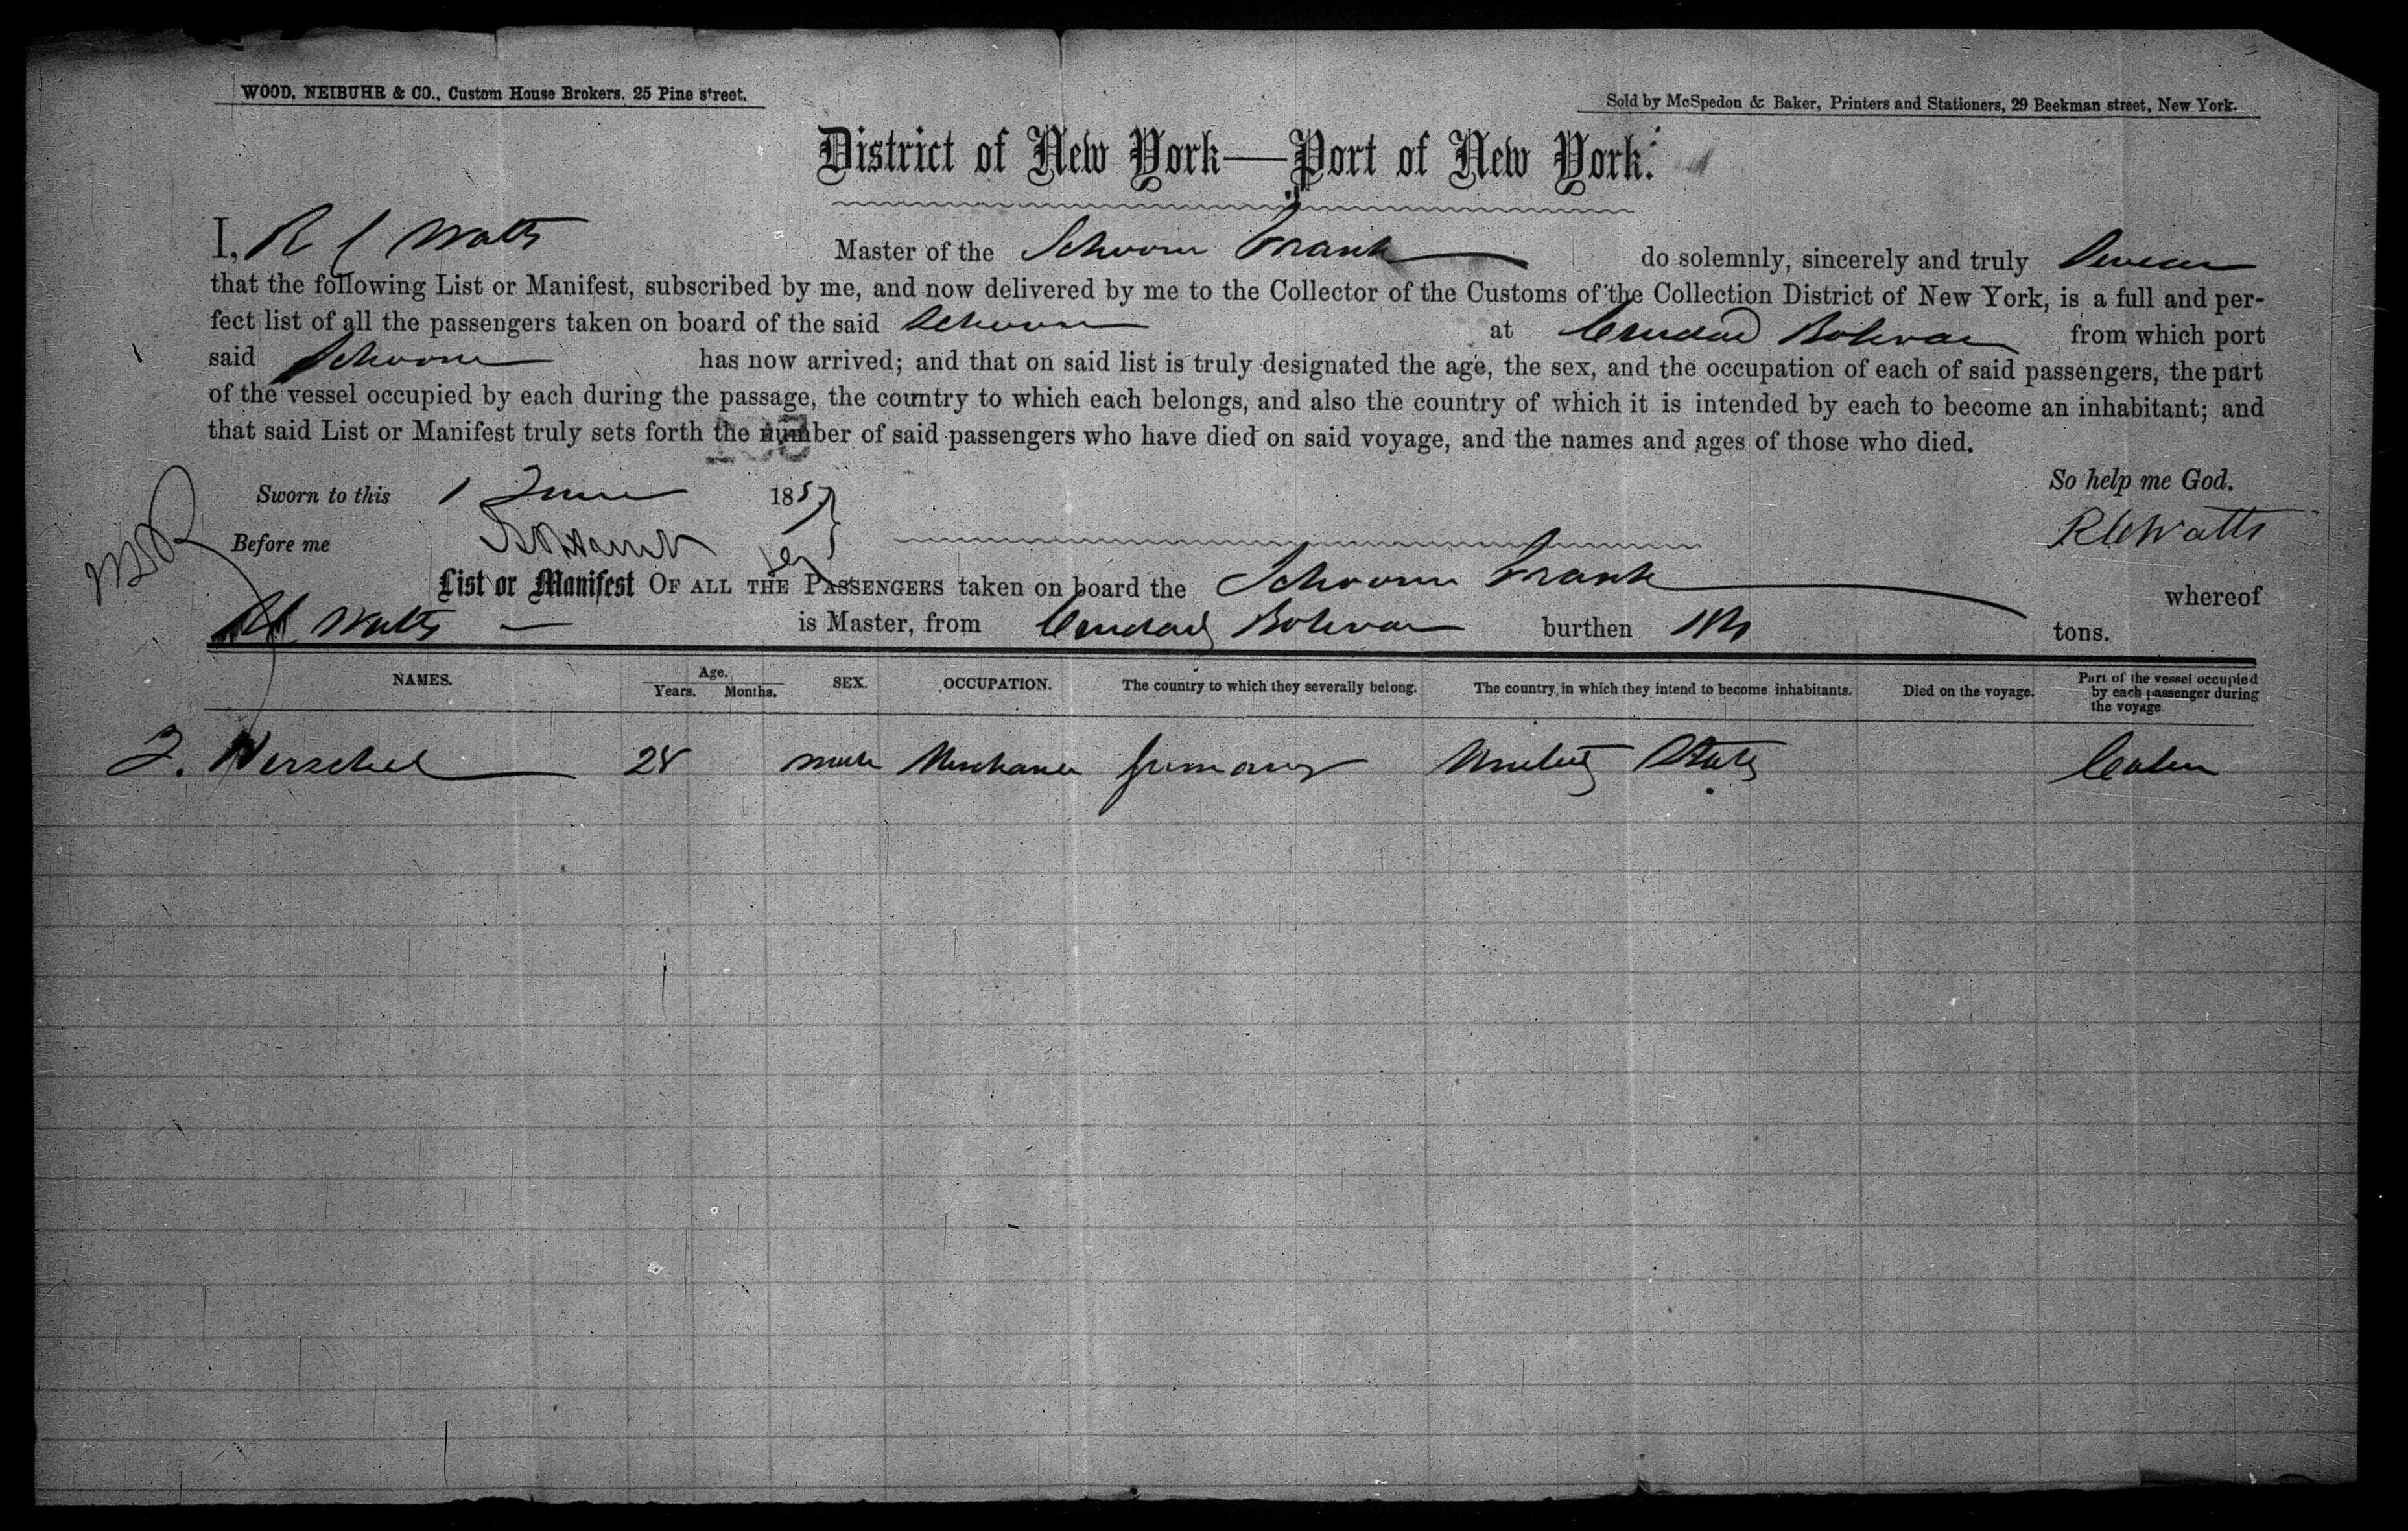 WOOD, NEIBUHR & CO., Custom House Brokers. 25 Pine street.
Sold by McSpedon & Baker, Printers and Stationers, 29 Beekman street, New York.
District of New York—Port of New York.
I, R C Watts Master of the Schoonr Frank do solemnly, sincerely and truly Swear
that the following List or Manifest, subscribed by me, and now delivered by me to the Collector of the Customs of the Collection District of New York, is a full and per-
fect list of all the passengers taken on board of the said Schoonr at Ciudad Bolivar from which port
said Schoonr has now arrived; and that on said list is truly designated the age, the sex, and the occupation of each of said passengers, the part
of the vessel occupied by each during the passage, the country to which each belongs, and also the country of which it is intended by each to become an inhabitant; and
that said List or Manifest truly sets forth the number of said passengers who have died on said voyage, and the names and ages of those who died.
So help me God.
Sworn to this 1 June 1857
Before me
R C Watts
List or Manifest OF ALL THE PASSENGERS taken on board the Schoonr Frank whereof
R C Watts is Master, from Ciudad Bolivar burthen tons.
NAMES. Age. Years. Months. SEX. OCCUPATION. The country to which they severally belong. The country in which they intend to become inhabitants. Died on the voyage. Part of the vessel occupied by each passenger during the voyage
Herschel 28 male Merchant Germany United States Cabin